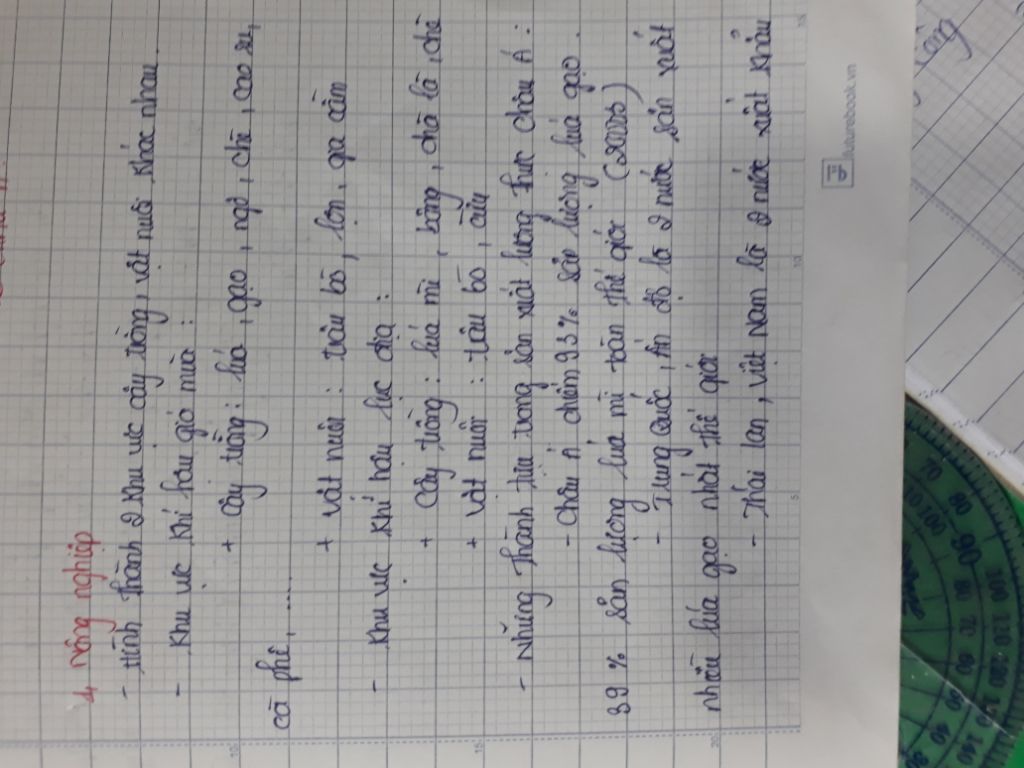 1, Nông nghiệp
- Hình thành 2 khu vực cây trồng, vật nuôi khác nhau.
- Khu vực khí hậu gió mùa:
+ Cây trồng: lúa, gạo, ngô, chè, cao su,
cà phê, .....
+ Vật nuôi: trâu bò, lợn, gia cầm
- Khu vực khí hậu lục địa:
+ Cây trồng: lúa mì, bông, chà là, chè
+ Vật nuôi: trâu bò, cừu
- Những thành tựu trong sản xuất lương thực châu Á:
- Châu Á chiếm 93% sản lượng lúa gạo.
39% sản lượng lúa mì toàn thế giới (2003)
- Trung Quốc, Ấn độ là 2 nước sản xuất
nhiều lúa gạo nhất thế giới
- Thái lan, Việt Nam là 2 nước xuất khẩu
futurebook.vn